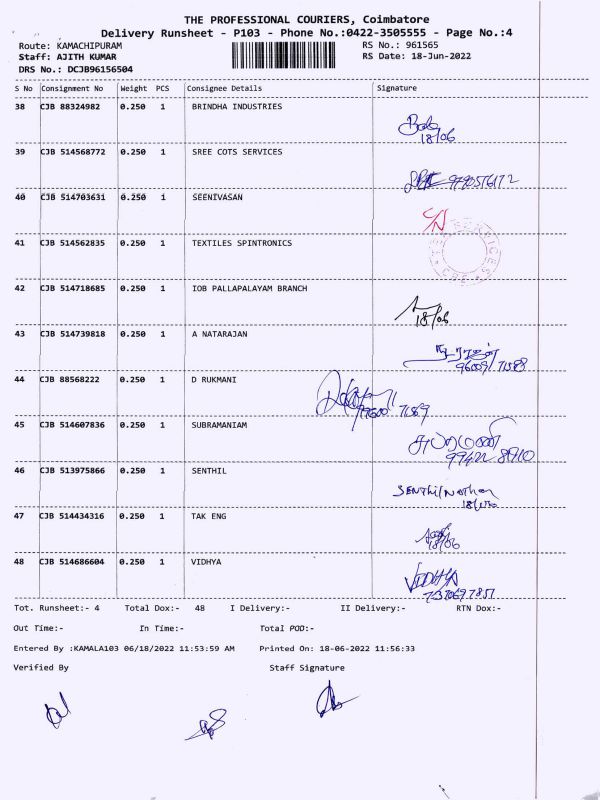 THE PROFESSIONAL COURIERS, Coimbatore
Delivery Runsheet - P103 - Phone No.:0422-3505555 - Page No.:4
Route: KAMACHIPURAM RS No.: 961565
Staff: AJITH KUMAR RS Date: 18-Jun-2022
DRS No.: DCJB96156504
S No Consignment No Weight PCS Consignee Details Signature
38 CJB 88324982 0.250 1 BRINDHA INDUSTRIES
18/06
39 CJB 514568772 0.250 1 SREE COTS SERVICES
9790576172
40 CJB 514703631 0.250 1 SEENIVASAN
41 CJB 514562835 0.250 1 TEXTILES SPINTRONICS
42 CJB 514718685 0.250 1 IOB PALLAPALAYAM BRANCH
18/06
43 CJB 514739818 0.250 1 A NATARAJAN
44 CJB 88568222 0.250 1 D RUKMANI
45 CJB 514607836 0.250 1 SUBRAMANIAM
99422 81910
46 CJB 513975866 0.250 1 SENTHIL
SENthilNathan
47 CJB 514434316 0.250 1 TAK ENG
18/06
48 CJB 514686604 0.250 1 VIDHYA
VIDHYA
Tot. Runsheet:- 4 Total Dox:- 48 I Delivery:- II Delivery:- RTN Dox:-
Out Time:- In Time:- Total POD:-
Entered By :KAMALA103 06/18/2022 11:53:59 AM Printed On: 18-06-2022 11:56:33
Verified By Staff Signature